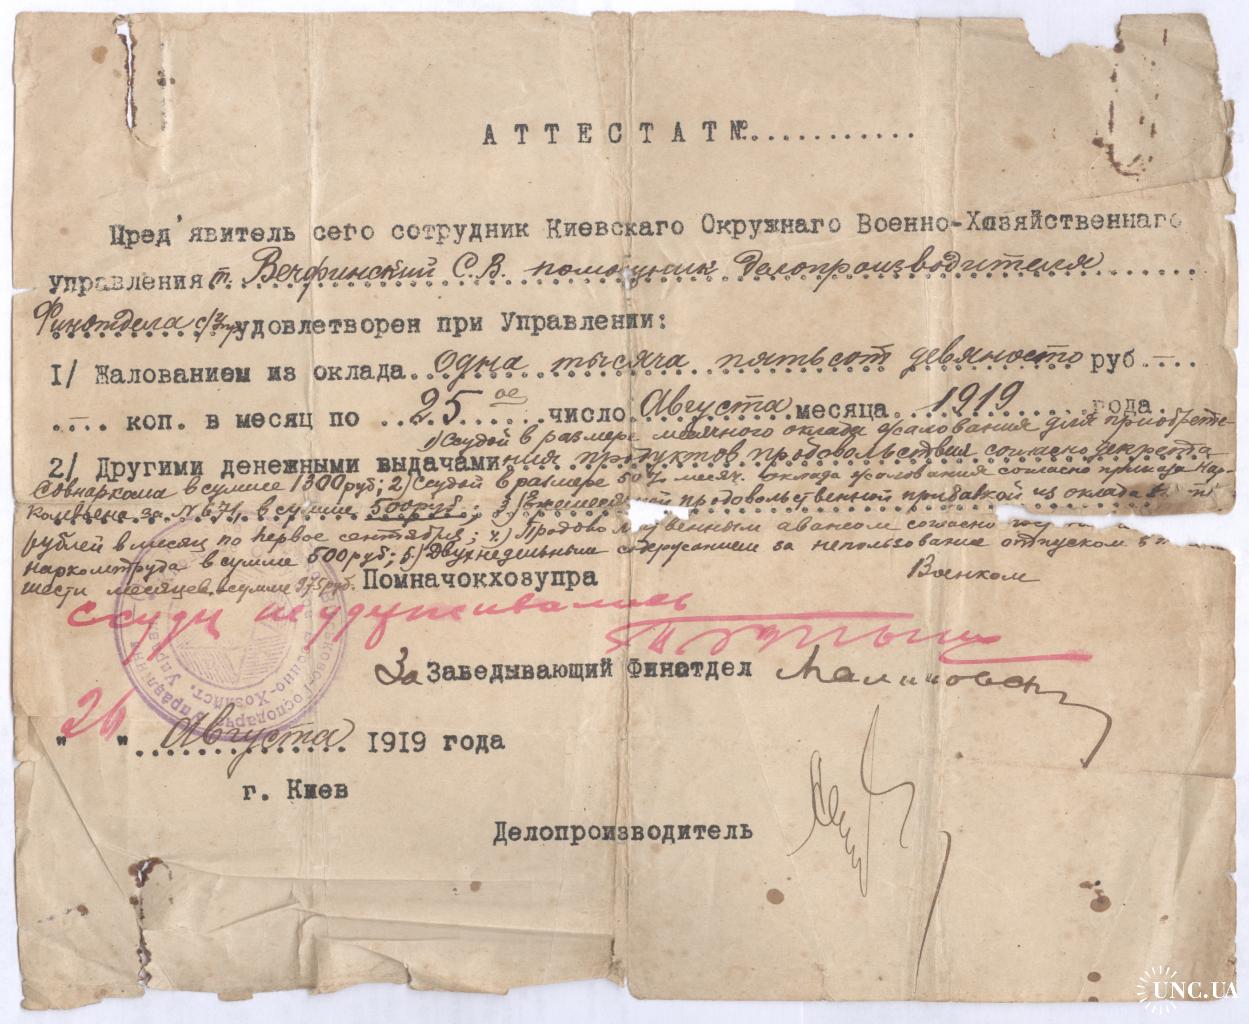 АТТЕСТАТ №............
Пред'явитель сего сотрудник Киевскаго Окружнаго Военно-Хозяйственнаго
управления т. Вечфинский С.В. помощник делопроизводителя
Финотдела с/ч удовлетворен при Управлении:
1/ Жалованием из оклада одна тысяча пятьсот девяносто руб —
— коп. в месяц по 25ое число Августа месяца 1919 года.
1) Ссудой в размере месячного оклада жалования для приобрете-
2/ Другими денежными выдачами: ния продуктов продовольствия согласно декрета
Совнаркома в сумме 1300 руб; 2) Ссудой в размере 50% месяч. оклада жалования согласно приказа Нар-
за № 671, в сумме 500 руб; 3) Ежемесячной продовольственной прибавкой из оклада
рублей в месяц по первое сентября; 4) Продовольственным авансом согласно
наркомтруда в сумме 500 руб; 5) Двухнедельным содержанием за непользование отпуском
шести месяцев, в сумме 975 руб. Помначокхозупра Военком
ссуды не удерживались
За Заведывающий Финотдел Малиновск
"26" Августа 1919 года
г. Киев
Делопроизводитель
UNC.UA